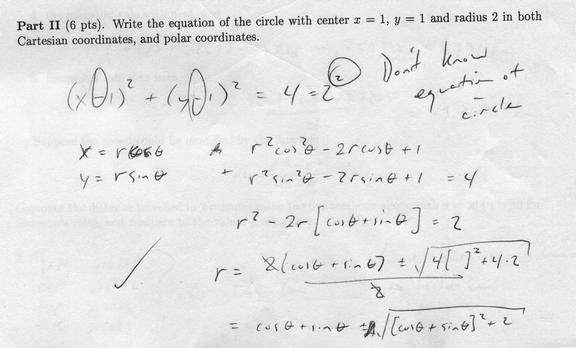 Part II (6 pts). Write the equation of the circle with center x = 1, y = 1 and radius 2 in both
Cartesian coordinates, and polar coordinates.
(x - 1)² + (y - 1)² = 4 = 2²
Don't know
equation of
circle
x = r cos θ
r² cos² θ - 2r cos θ + 1
y = r sin θ
+ r² sin² θ - 2r sin θ + 1 = 4
r² - 2r [cos θ + sin θ] = 2
r = 2(cos θ + sin θ) ± √4[ ]² + 4·2 / 2
= cos θ + sin θ ± √[cos θ + sin θ]² + 2